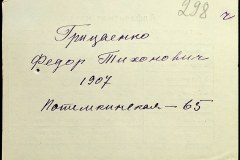 298 ч
Гриценко
Федор Тихонович
1907
Потемкинская - 65